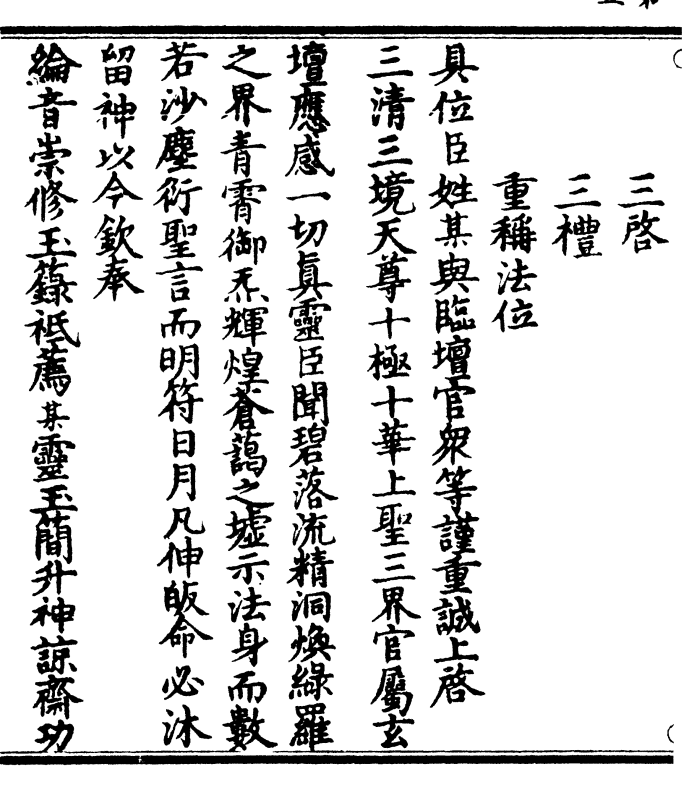 三啓
三禮
重稱法位
具位臣姓某與臨壇官衆等謹重誠上啓
三清三境天尊十極十華上聖三界官屬玄
壇應感一切眞靈臣聞碧落流精洞煥綠羅
之界青霄御炁輝煌蒼藹之墟示法身而數
若沙塵衍聖言而明符日月凡伸皈命必沐
留神以今欽奉
綸音崇修玉籙祇薦某靈玉簡升神諒齋功